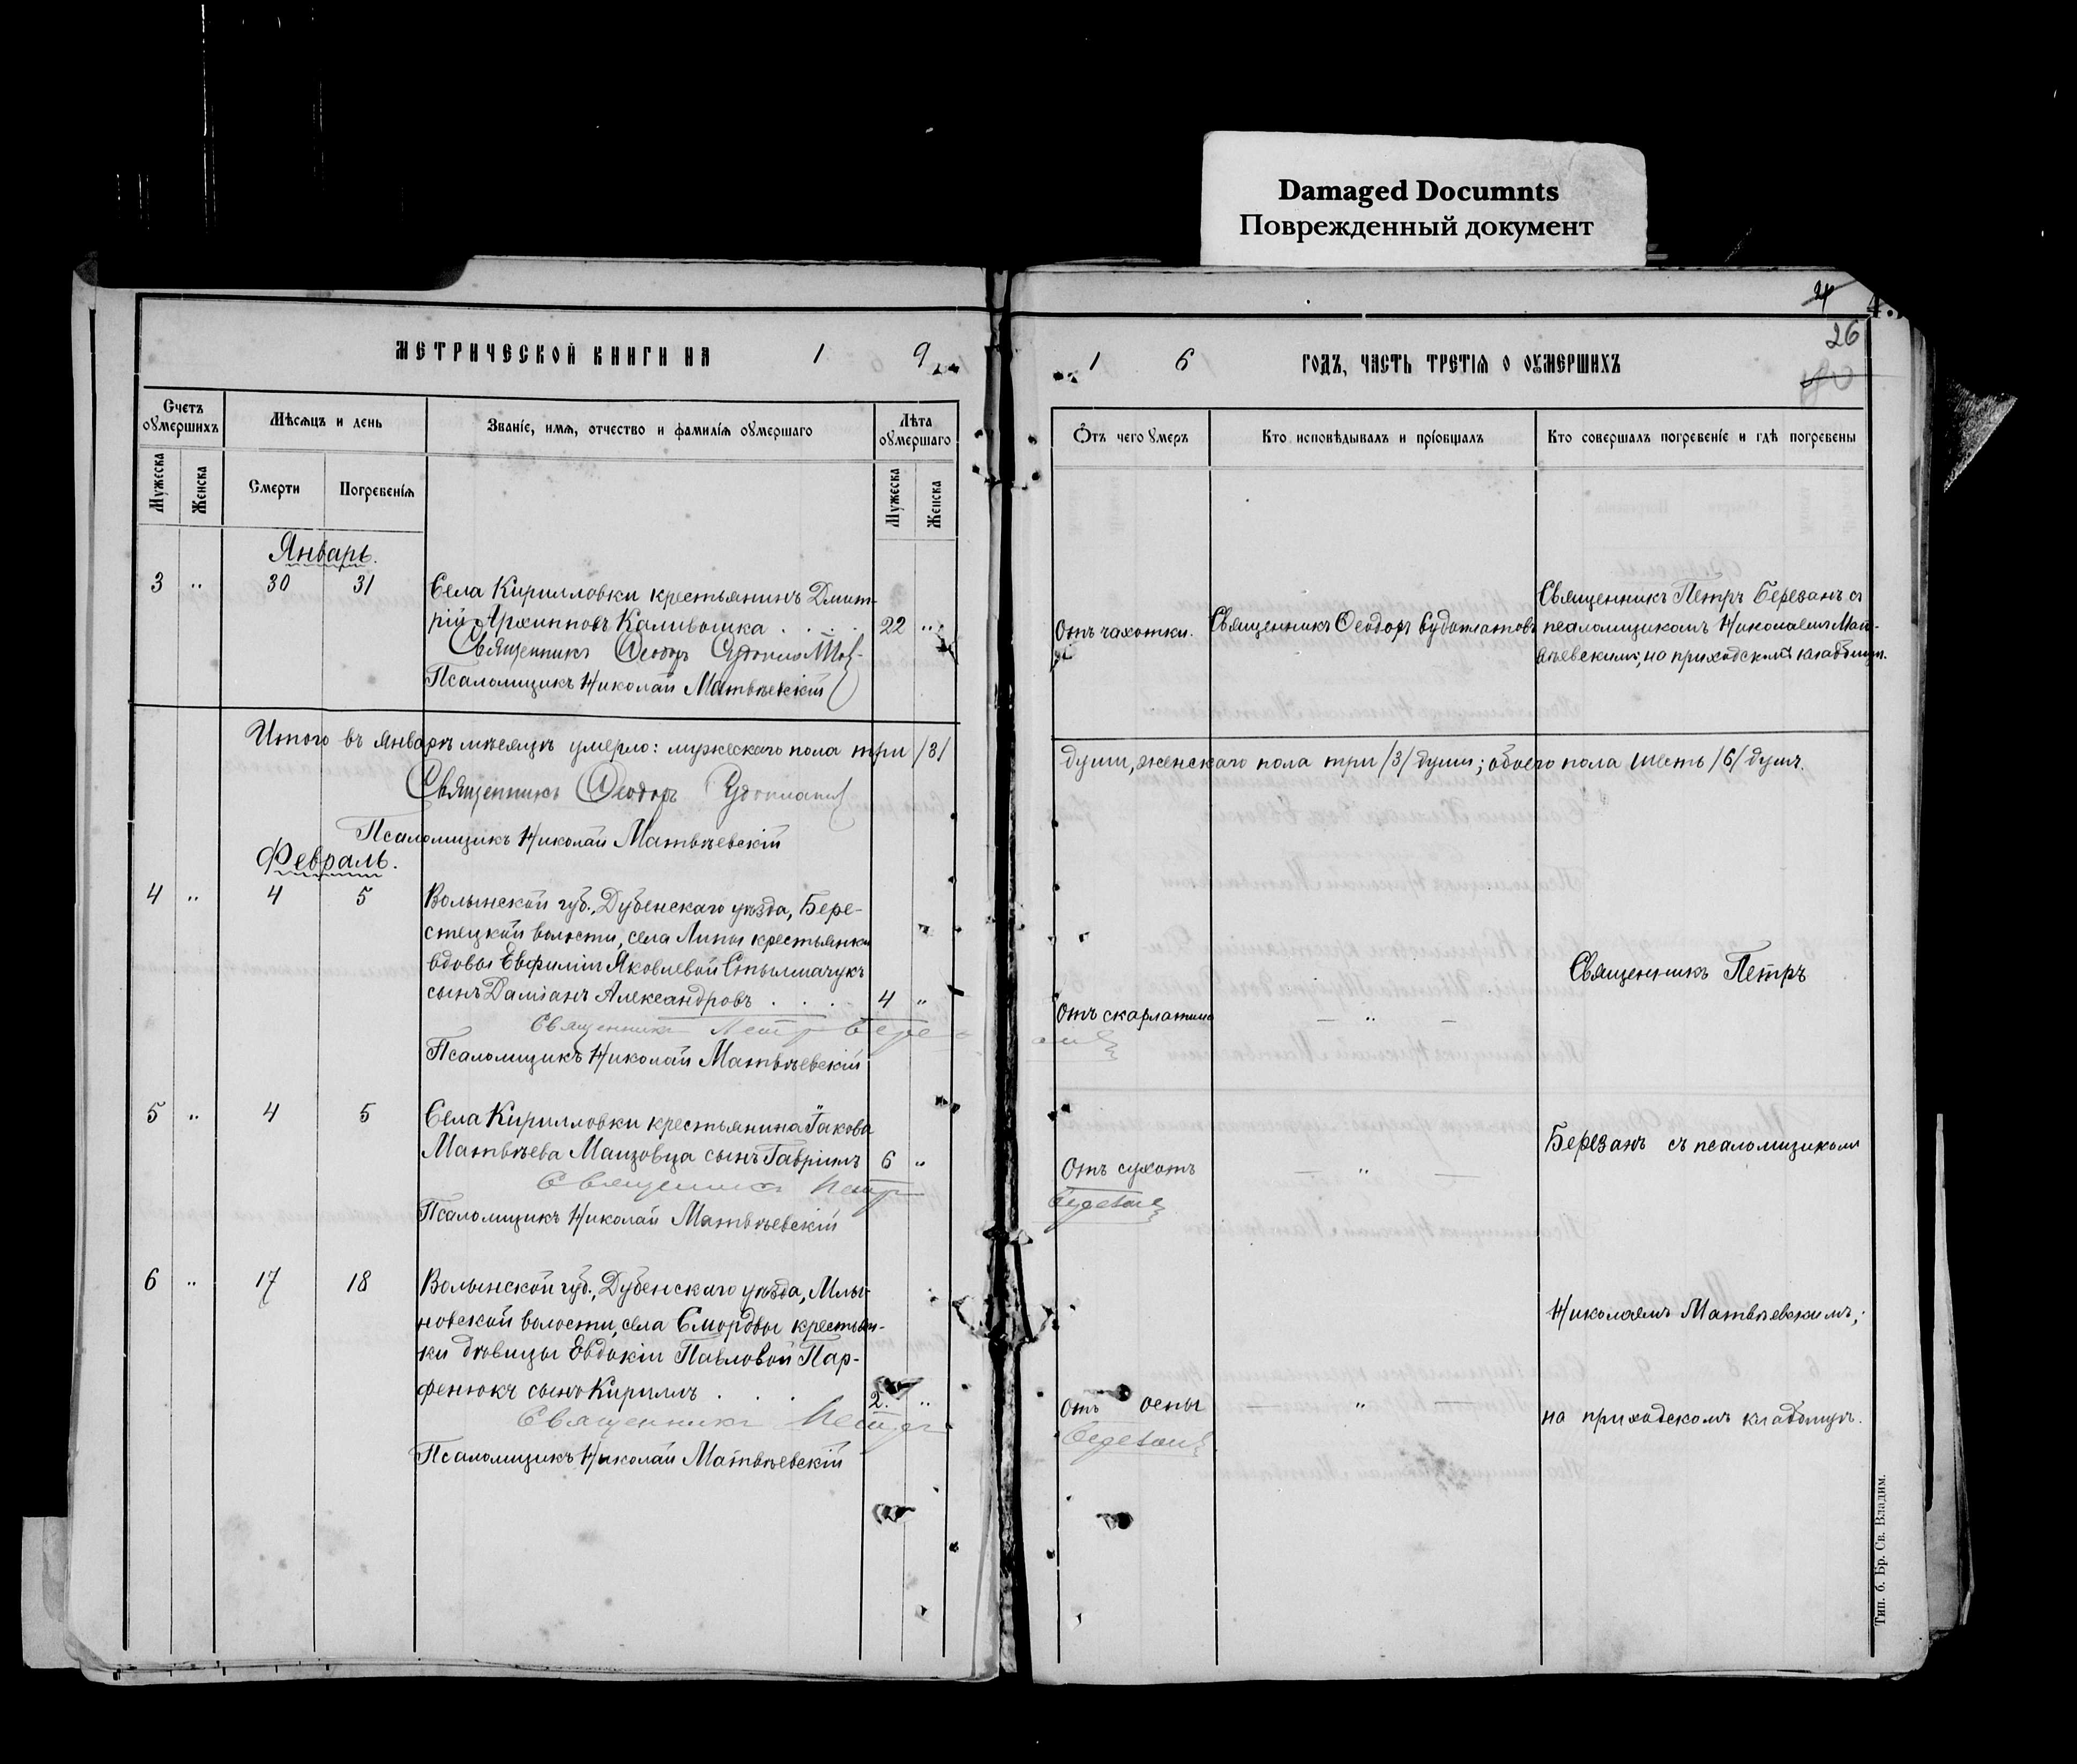 Damaged Documnts
Поврежденный документ
МЕТРИЧЕСКОЙ КНИГИ НА 1 9
Счетъ оумершихъ
Мужеска
Женска
Мѣсяцъ и день
Смерти
Погребенія
Званіе, имя, отчество и фамилія оумершаго
Лѣта оумершаго
Мужеска
Женска
Январь.
3 " 30 31
Села Кирилловки крестьянинъ Дмит-
рій Архиповъ Каливошка . . . . 22 "
Священникъ Ѳеодоръ
Псаломщикъ Николай Матвѣевскій
Итого въ январѣ мѣсяцѣ умерло: мужескаго пола три /3/
Священникъ Ѳеодоръ
Псаломщикъ Николай Матвѣевскій
Февраль.
4 " 4 5
Волынской губ., Дубенскаго уѣзда, Бере-
стецкой волости, села Липы крестьянки
вдовы Евфиміи Яковлевой
сынъ Даміанъ Александровъ . . . 4 "
Священникъ Петръ Бере
Псаломщикъ Николай Матвѣевскій
5 " 4 5
Села Кирилловки крестьянина Іакова
Матвѣева сынъ Гавріилъ 6 "
Священникъ Петръ
Псаломщикъ Николай Матвѣевскій
6 " 17 18
Волынской губ., Дубенскаго уѣзда, Млы-
новской волости, села Смордвы крестьян-
ки дѣвицы Евдокіи Павловой Пар-
фенюкъ сынъ Кириллъ . . . 2. "
Священникъ Петръ
Псаломщикъ Николай Матвѣевскій
4.
26
1 6 ГОДЪ, ЧАСТЬ ТРЕТІЯ О ОУМЕРШИХЪ
Отъ чего умеръ
Кто исповѣдывалъ и пріобщалъ
Кто совершалъ погребеніе и гдѣ погребены
Отъ чахотки.
Священникъ Ѳеодоръ
Священникъ Петръ Березанъ съ
псаломщикомъ Николаемъ Мат-
вѣевскимъ, на приходскомъ кладбищѣ.
души, женскаго пола три /3/ души; обоего пола шесть /6/ душъ.
Отъ скарлатины
— " —
Священникъ Петръ
Отъ сухотъ
— " —
Березанъ
Березанъ съ псаломщикомъ
Николаемъ Матвѣевскимъ;
Отъ оспы
— " —
Березанъ
на приходскомъ кладбищѣ.
Тип. б. Бр. Св. Владим.